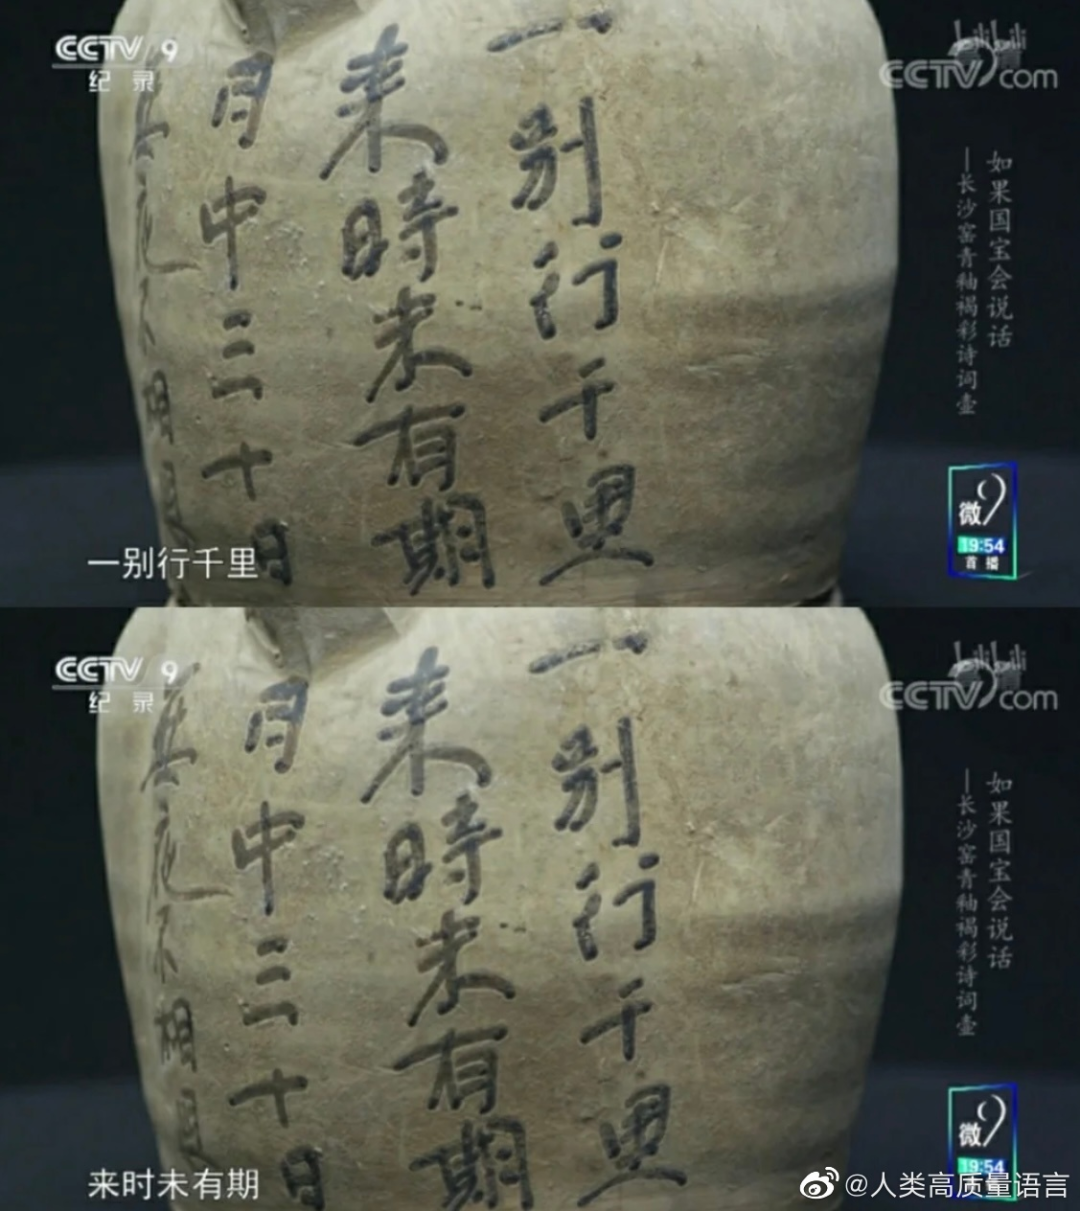 CCTV 9
纪录
CCTV.com
bilibili
一别行千里
来時未有期
月中三十日
無夜不相思
如果国宝会说话
—长沙窑青釉褐彩诗词壶
微9
19:54
首播
一别行千里
CCTV 9
纪录
CCTV.com
bilibili
一别行千里
来時未有期
月中三十日
無夜不相思
如果国宝会说话
—长沙窑青釉褐彩诗词壶
微9
19:54
来时未有期
@人类高质量语言